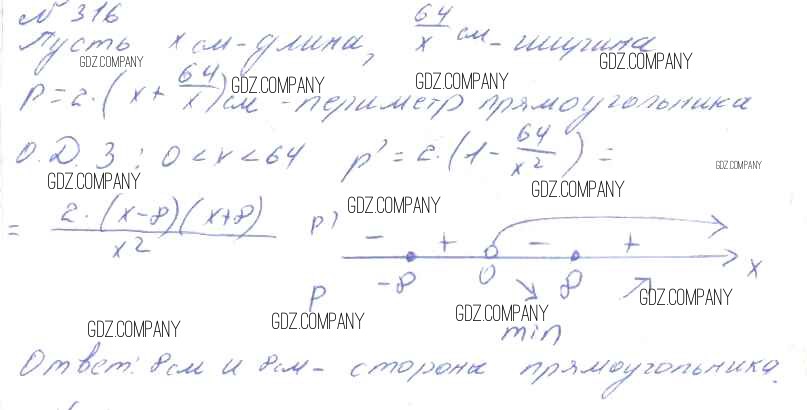 № 316
Пусть x см - длина, 64/x см - ширина
GDZ.COMPANY GDZ.COMPANY
P = 2·(x + 64/x) см - периметр прямоугольника
GDZ.COMPANY GDZ.COMPANY
О.Д.З: 0 < x < 64 P' = 2·(1 - 64/x²) =
GDZ.COMPANY GDZ.COMPANY GDZ.COMPANY
= 2·(x-8)(x+8)/x² P'
GDZ.COMPANY
- + - +
-8 0 8 x
P ↘ ↗
GDZ.COMPANY
GDZ.COMPANY GDZ.COMPANY GDZ.COMPANY
min
Ответ: 8 см и 8 см - стороны прямоугольника.